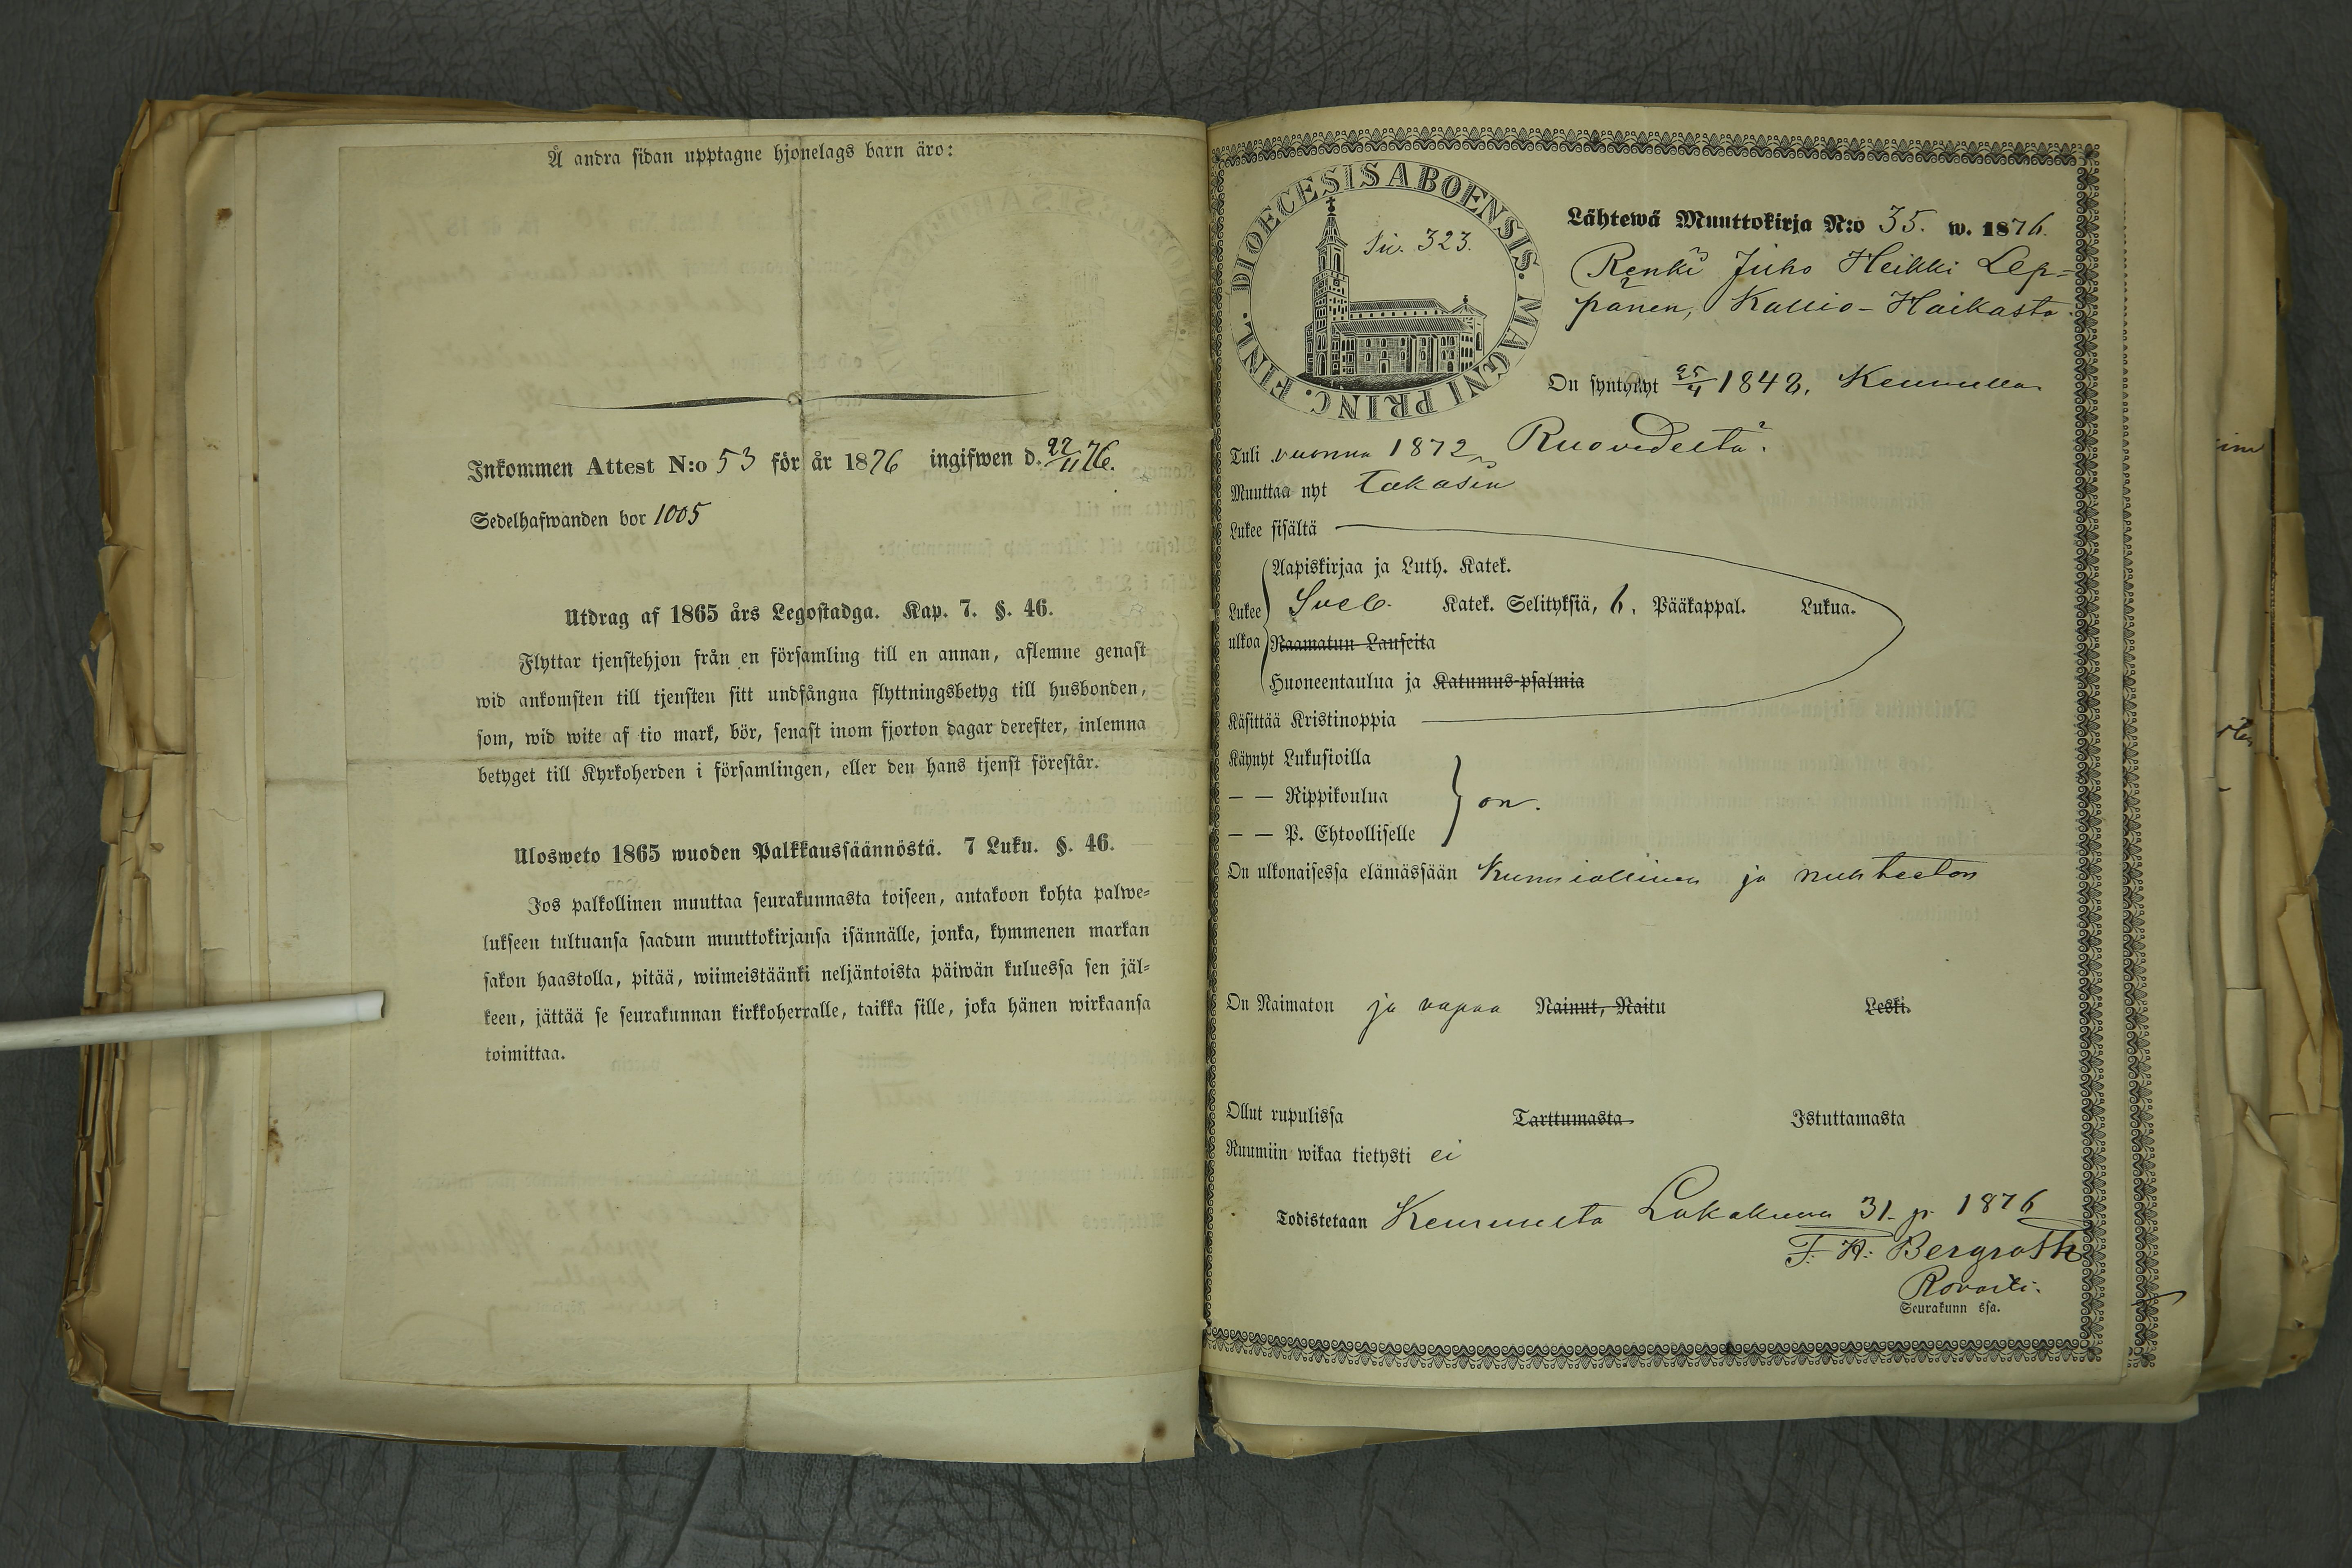 Å andra sidan upptagne hjonelags barn äro:
Inkommen Attest N:o 53 för år 1876 ingifwen d. 22/11 76.
Sedelhafwanden bor 1005
Utdrag af 1865 års Legostadga. Kap. 7. §. 46.
Flyttar tjenstehjon från en församling till en annan, aflemne genast
wid ankomsten till tjensten sitt undfångna flyttningsbetyg till husbonden,
som, wid wite af tio mark, bör, senast inom fjorton dagar derefter, inlemna
betyget till Kyrkoherden i församlingen, eller den hans tjenst förestår.
Ulosweto 1865 wuoden Palkkaussäännöstä. 7 Luku. §. 46.
Jos palkollinen muuttaa seurakunnasta toiseen, antakoon kohta palwe-
lukseen tultuansa saadun muuttokirjansa isännälle, jonka, kymmenen markan
sakon haastolla, pitää, wiimeistäänki neljäntoista päiwän kuluessa sen jäl-
keen, jättää se seurakunnan kirkkoherralle, taikka sille, joka hänen wirkaansa
toimittaa.
DIOECESIS ABOENSIS. MAGNI PRINC. FINL.
Siv. 323.
Lähtewä Muuttokirja N:o 35. w. 1876.
Renki Juho Heikki Lep=
pänen, Kallio-Haikasta
On syntynyt 25/4 1848, Keuruulla
Tuli vuonna 1872 Ruovedeltä.
Muuttaa nyt takasin
Lukee sisältä
Aapiskirjaa ja Luth. Katek.
Lukee Sveb. Katek. Selityksiä, 6. Pääkappal. Lukua.
ulkoa Raamatun Lauseita
Huoneentaulua ja Katumus-psalmia
Käsittää Kristinoppia
Käynyt Lukusioilla
— — Rippikoulua on.
— — P. Ehtoolliselle
On ulkonaisessa elämässään Kunniallinen ja nuhteeton
On Naimaton ja vapaa Nainut, Naitu Leski.
Ollut rupulissa Tarttumasta Istuttamasta
Ruumiin wikaa tietysti ei
Todistetaan Keuruulta Lokakuun 31. p. 1876
F. H. Bergroth
Rovasti.
Seurakunn ssa.